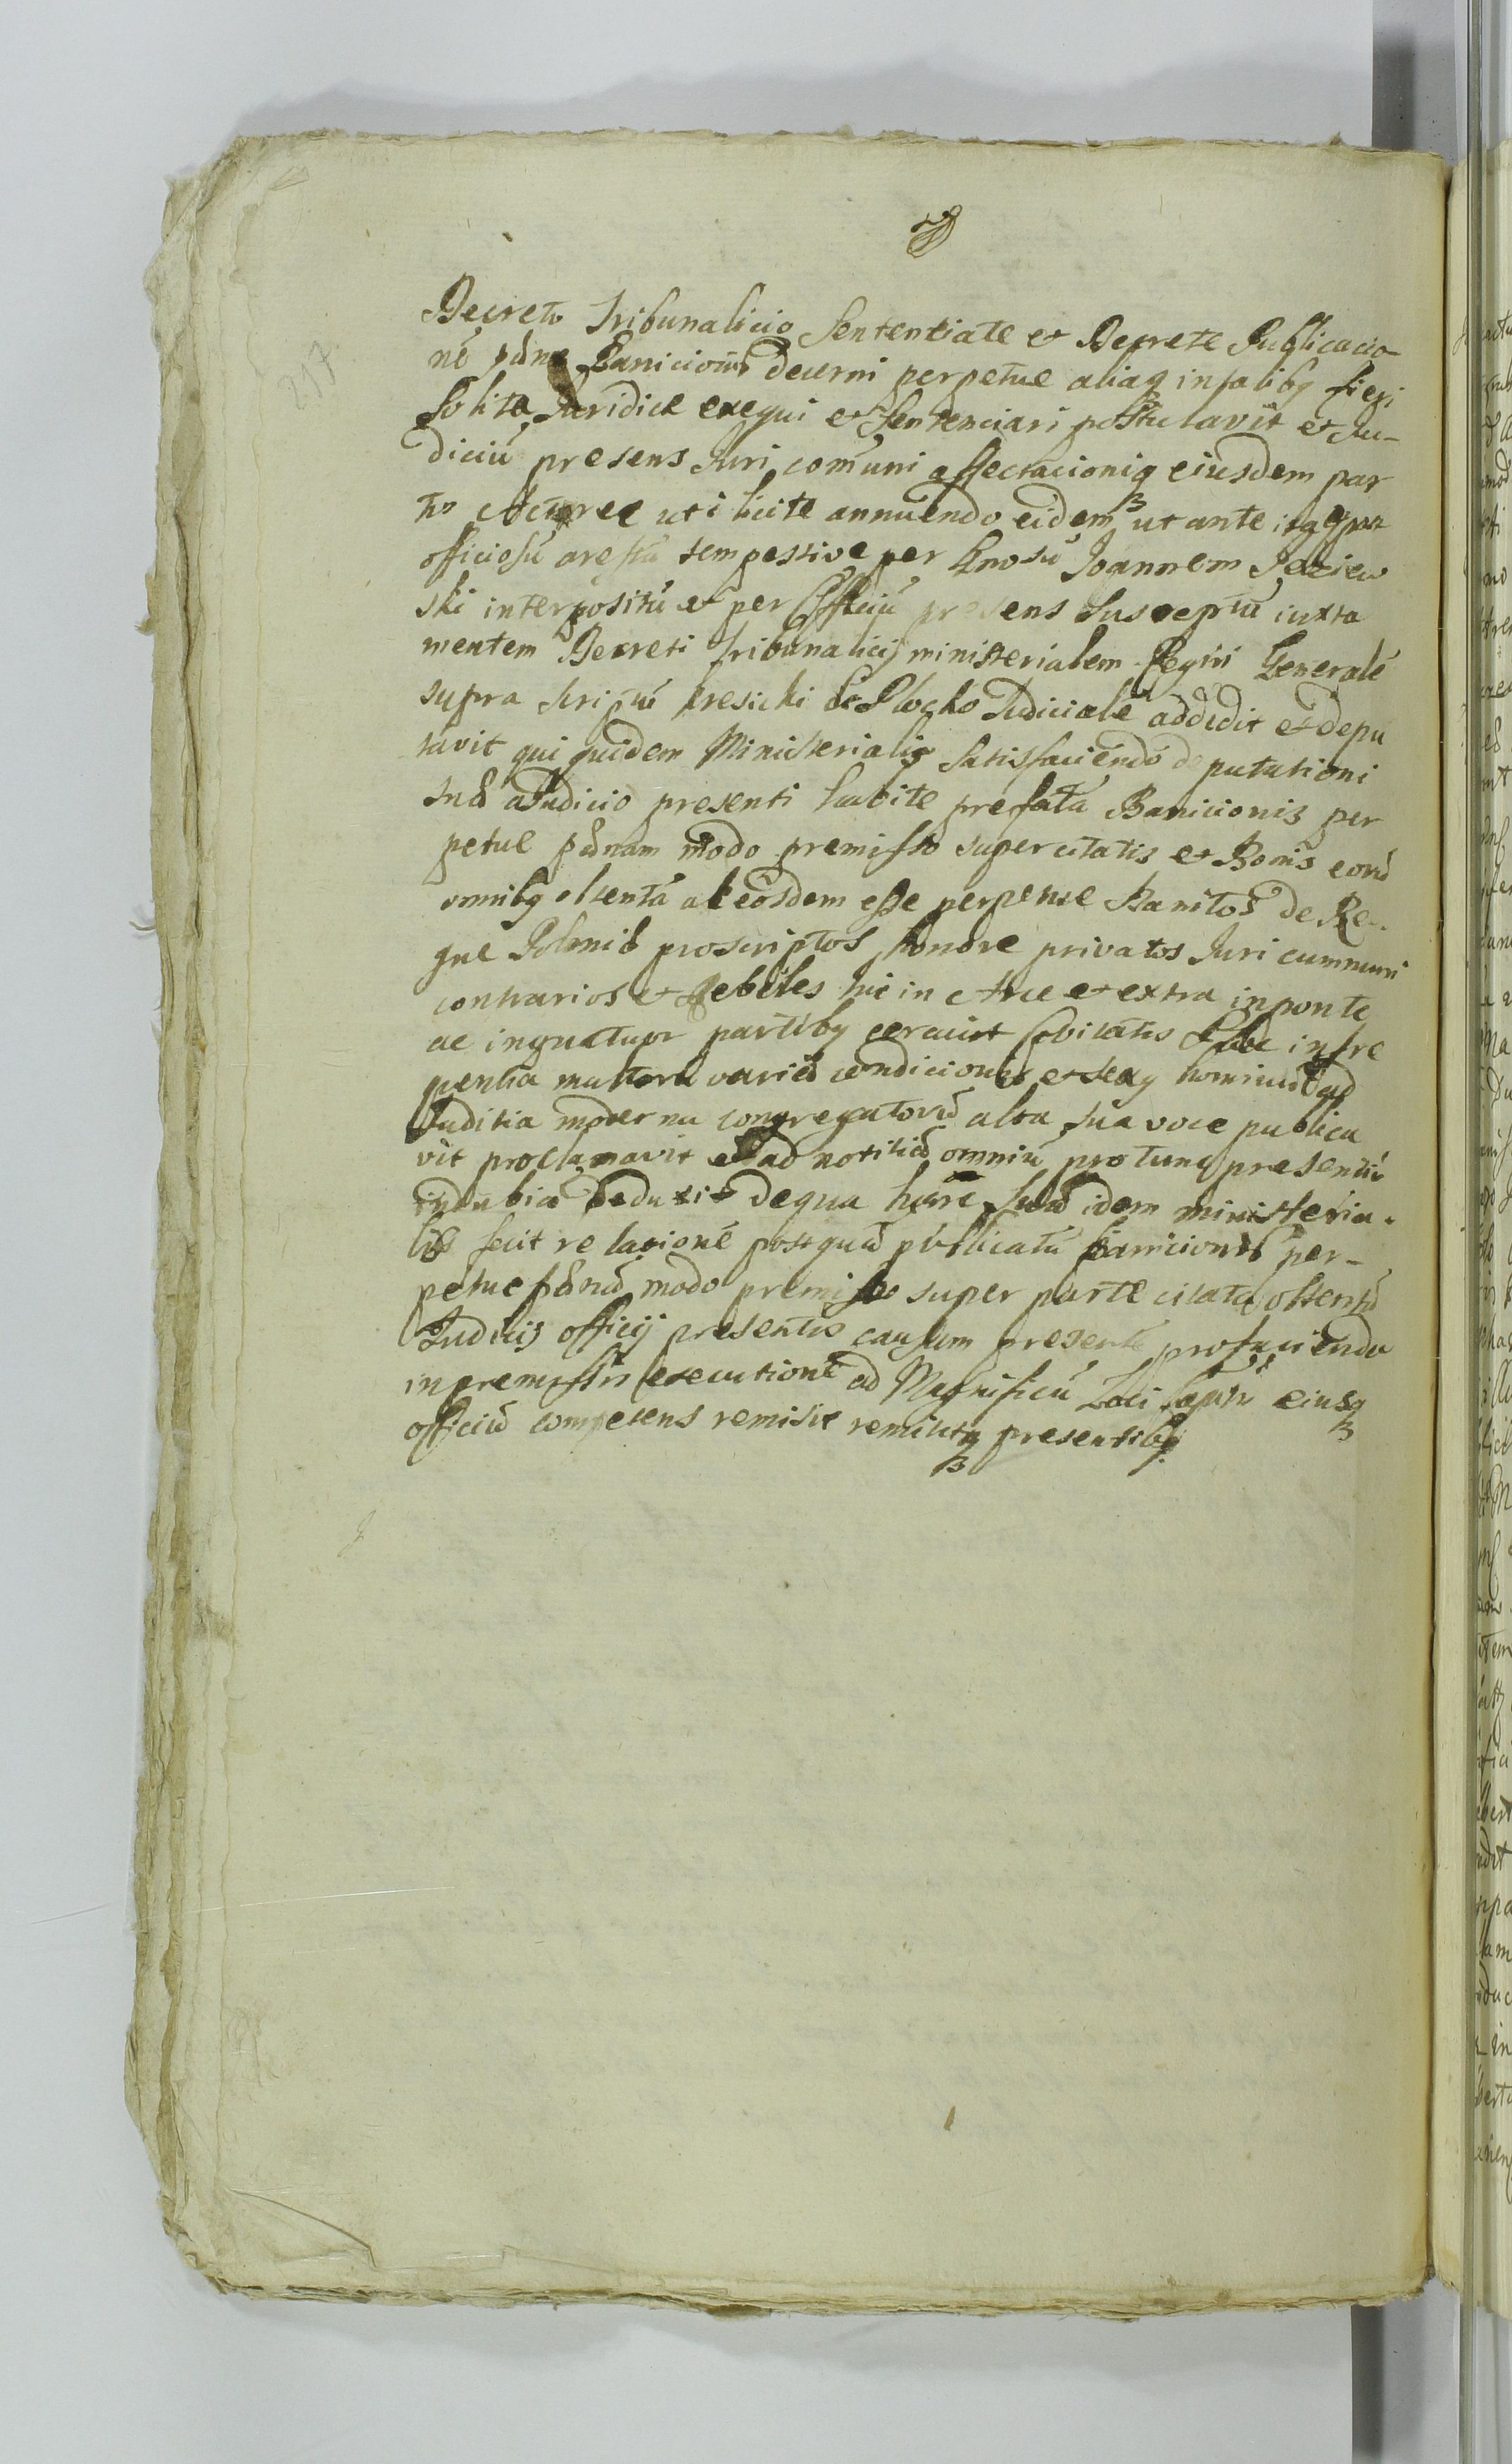 217
Decreto Tribunalicio Sententiate et Decrete Publicacio-
nē pænæ Banicionis decerni perpetue aliaq in talibq fieri
solita Juridice exequi et Sentenciari postulavit et Ju-
diciū presens Juri com̄uni affectacioniq eiusdem par
tis Actoree uti licite annuendo eidem ut ante
officiosū arestū tempestive per Gnosū Joannem Jeziew
ski interpositū et per Officiū presens susceptū iuxta
mentem Decreti Tribunalicij ministerialem Regni Generalē
supra scriptū Kresicki de Plocko Judicialē addidit et depu
tavit qui quidem Ministerialis satisfaciendo deputationi
suæ a Judicio presenti habite prefatā Banicionis per
petue pænam modo premisso super citatis et Bonis eorū
omnibq obtentā ac eosdem esse perpetue Banitos de Re-
gne Poloniæ proscriptos honore privatos Juri cummuni
contrarios et Rebeles hic in Arce et extra in ponte
ac in partibq civitatis infre
quentia multorū variæ condicionis et sexq hominū ad
Juditia moderna congregatorū alta sua voce publica
vit proclamavit et ad notitiā omniū pro tunc presentiū
indubiā deduxit de qua suā idem ministeria-
lis fecit relationē post quā publicatā Banicionis per-
petue pænā modo premisso super parte citata obtentā
Judicis officij presentis causam presentē pro facienda
in premissis executione ad Magnificū Loci Captū eiusq
officiū competens remisit remittitq presentibq